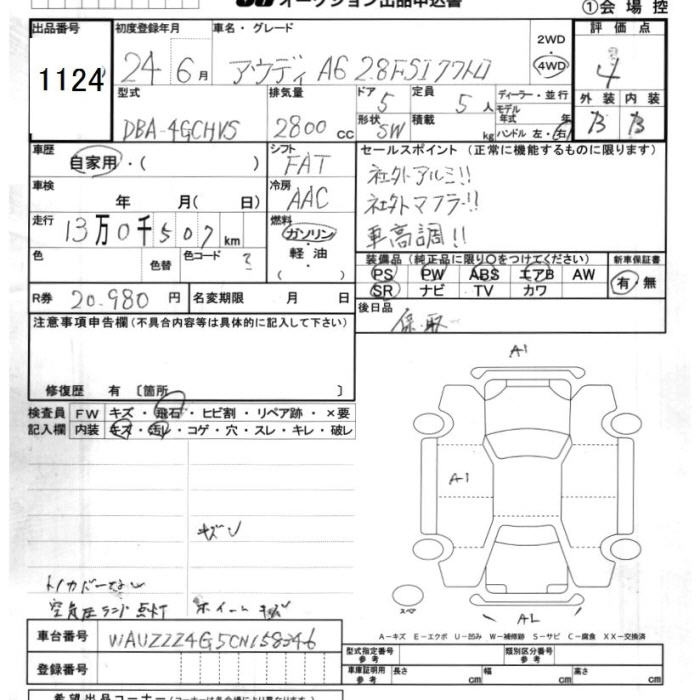 オークション出品申込書
①会場控
出品番号 初度登録年月 車名・グレード 2WD 評価点
1124 24年6月 アウディ A6 2.8FSIクワトロ 4WD 4
型式 排気量 ドア 5 定員 5人 ディーラー・並行 外装 内装
DBA-4GCHVS 2800cc 形状 SW 積載 kg モデル年式 年 B B
ハンドル 左・右
車歴 シフト セールスポイント (正常に機能するものに限ります)
自家用・( ) FAT
車検 冷房 社外アルミ!!
年 月( 日) AAC 社外マフラー!!
走行 燃料 車高調!!
13万0千507km ガソリン
色 色替 色コード 軽油 装備品(純正品に限り○をつけてください) 新車保証書
PS PW ABS エアB AW 有・無
SR ナビ TV カワ
R券 20,980円 名変期限 月 日 後日品
注意事項申告欄(不具合内容等は具体的に記入して下さい) 保・取
修復歴 有 〔箇所 〕
検査員 FW キズ・飛石・ヒビ割・リペア跡・×要
記入欄 内装 キズ・汚レ・コゲ・穴・スレ・キレ・破レ
A1
A1
キズ
トノカバーなし
空気圧ランプ点灯 ホイールキズ
スペア
A2
A-キズ E-エクボ U-凹み W-補修跡 S-サビ C-腐食 XX-交換済
車台番号 WAUZZZ4G5CN158346
型式指定番号 参考 類別区分番号 参考
登録番号 車庫証明用 参考 長さ cm 幅 cm 高さ cm
希望出品コーナー